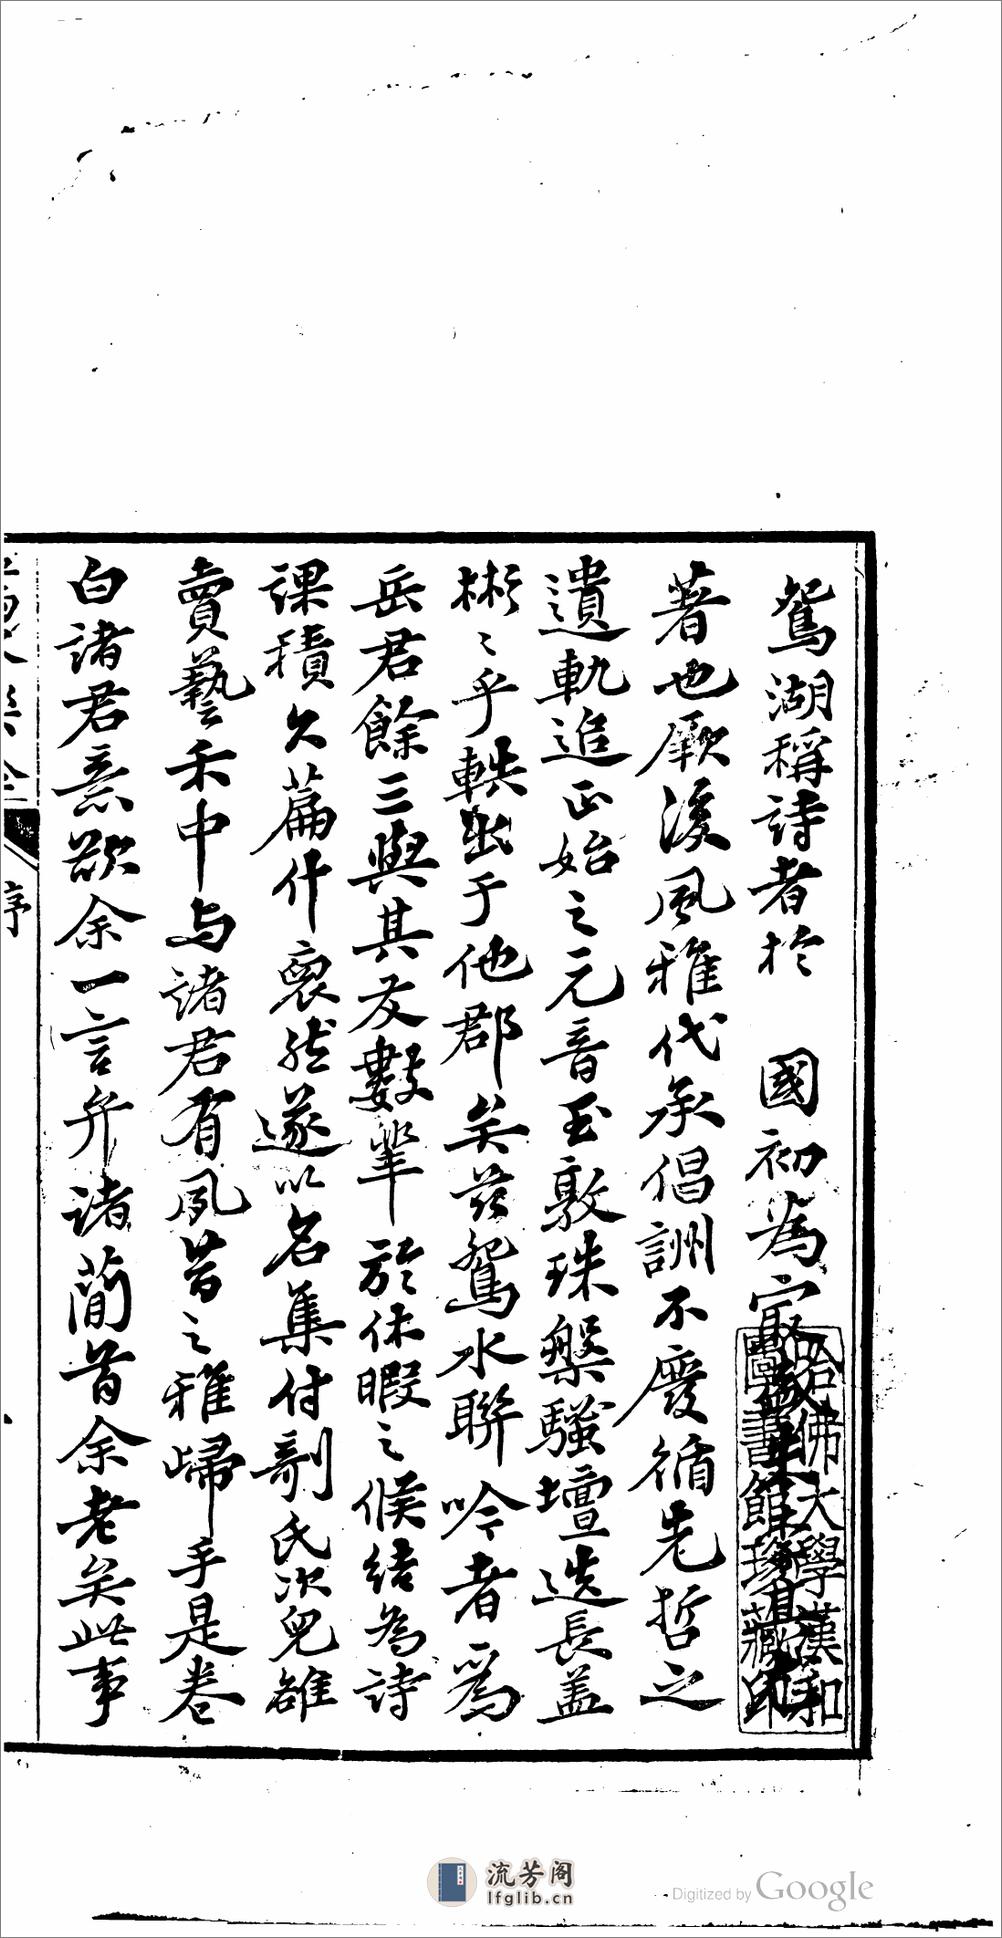 鴛湖稱詩者於 國初為宷
著也厥後風雅代承倡詶不廢循先哲之
遺軌追正始之元音玉敦珠槃騷壇迭長盖
彬〻乎軼出于他郡矣茲鴛水聯吟者爲
岳君餘三與其友數輩於休暇之候結為詩
課積久篇什裒然遂以名集付剞氏次兒雒
賣藝禾中与諸君有夙昔之雅歸手是卷
白諸君意欲余一言弁諸簡首余老矣此事
序
哈佛大學漢和
圖書館珍藏印
流芳阁
lfglib.cn
Digitized by Google